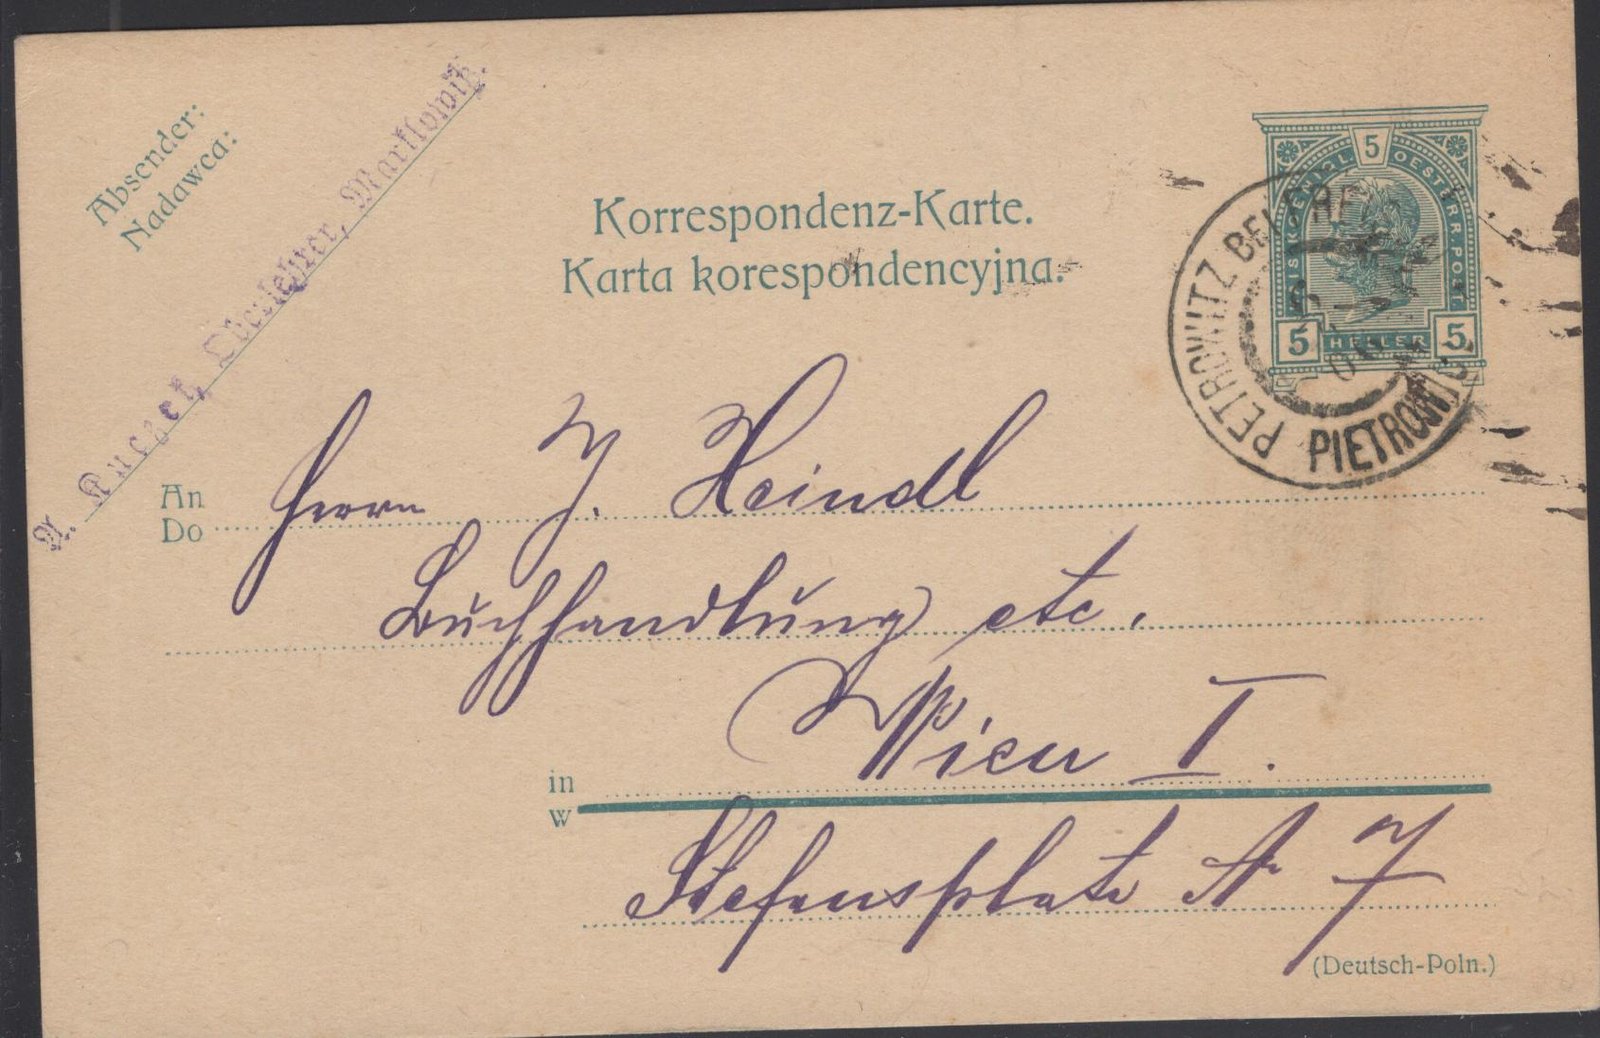 Absender:
Nadawca:
A. Kuczek, Oberlehrer, Marklowitz.
Korrespondenz-Karte.
Karta korespondencyjna.
KAIS. KOENIGL. OESTERR. POST
5
5 HELLER 5
PETROWITZ BEI
PIETROWIC
An
Do
Herrn J. Heindl
Buchhandlung etc.
in
w
Wien I.
Stefansplatz No 7
(Deutsch-Poln.)